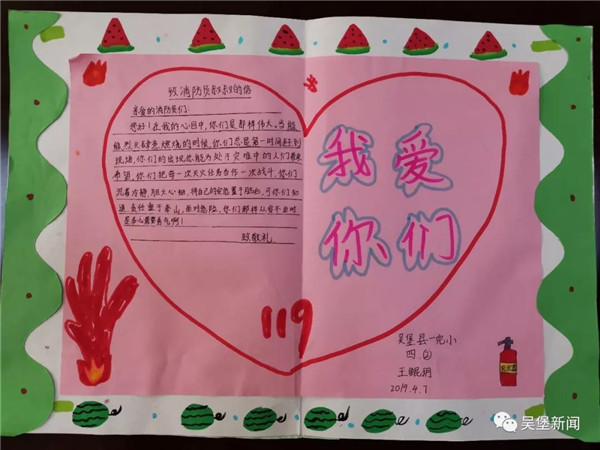 致消防员叔叔的信
亲爱的消防员们:
您好！在我的心目中，你们是那样伟大。当熊
熊烈火肆意燃烧的时候，你们总是第一时间赶到
现场，你们的出现总能为处于灾难中的人们带来
希望，你们把每一次灭火任务当作一次战斗，你们
沉着冷静，胆大心细，将自己的安危置于脑后，可你们知
道责任重于泰山，面对危险，你们那样从容不迫时
是多么需要勇气啊！
致敬礼
我爱
你们
119
吴堡县一完小
四（2）
王
2019.4.7
吴堡新闻